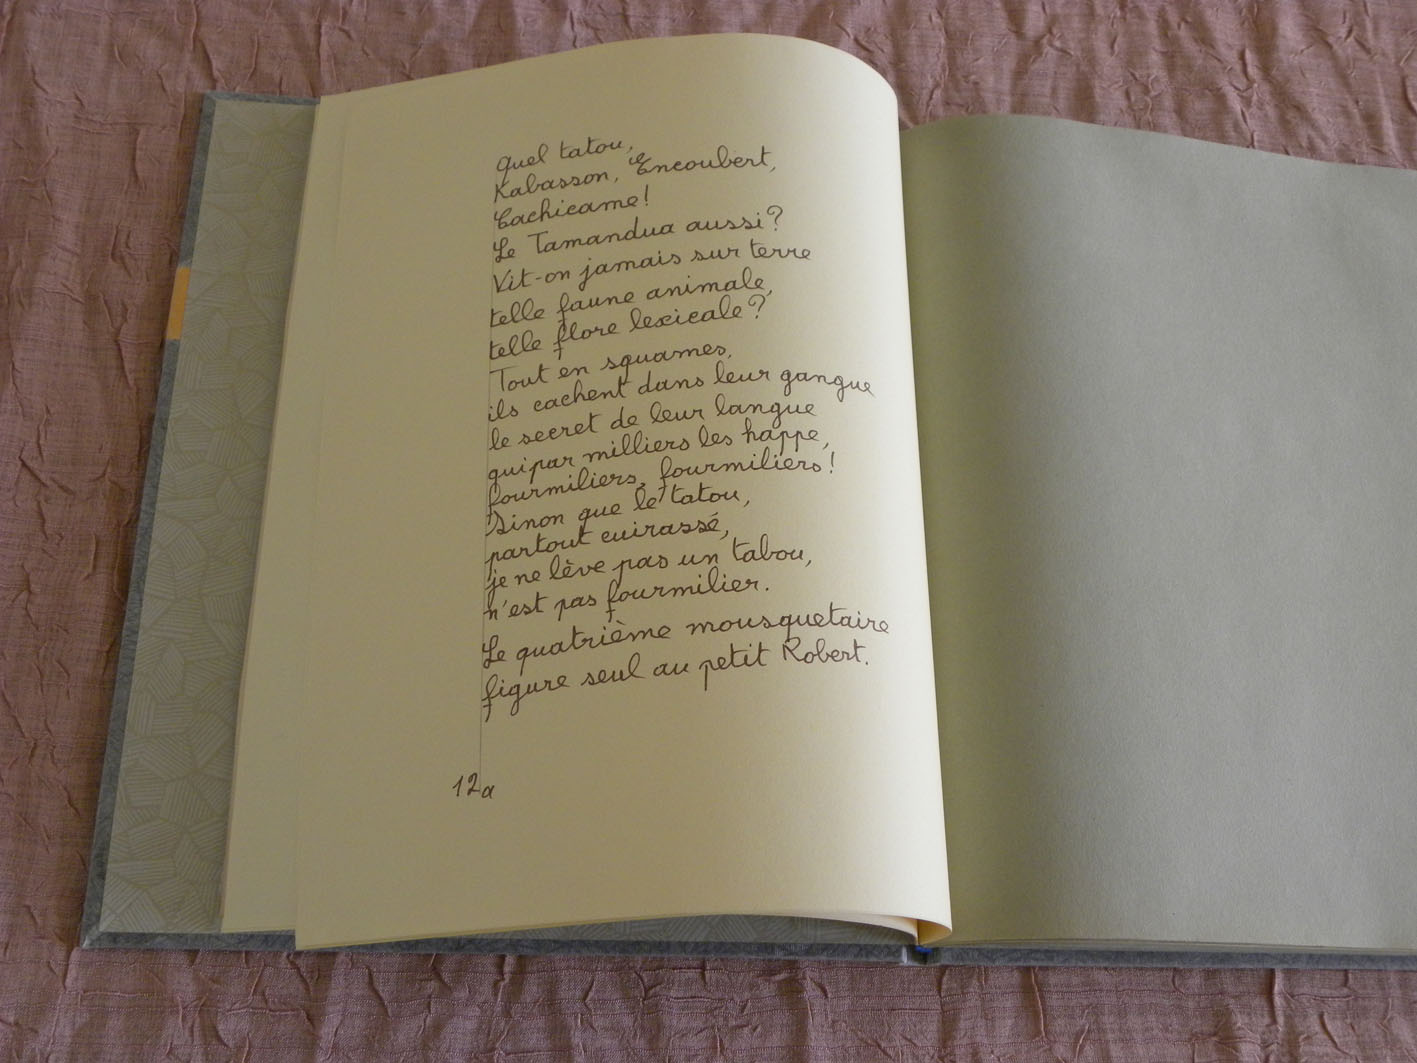 quel tatou,
Kabasson, Encoubert,
Cachicame!
Le Tamandua aussi?
Vit-on jamais sur terre
telle faune animale,
telle flore lexicale?
Tout en squames,
ils cachent dans leur gangue
le secret de leur langue
qui par milliers les happe,
fourmiliers, fourmiliers!
Sinon que le tatou,
partout cuirassé,
je ne lève pas un tabou,
n'est pas fourmilier.
Le quatrième mousquetaire
figure seul au petit Robert.
12a